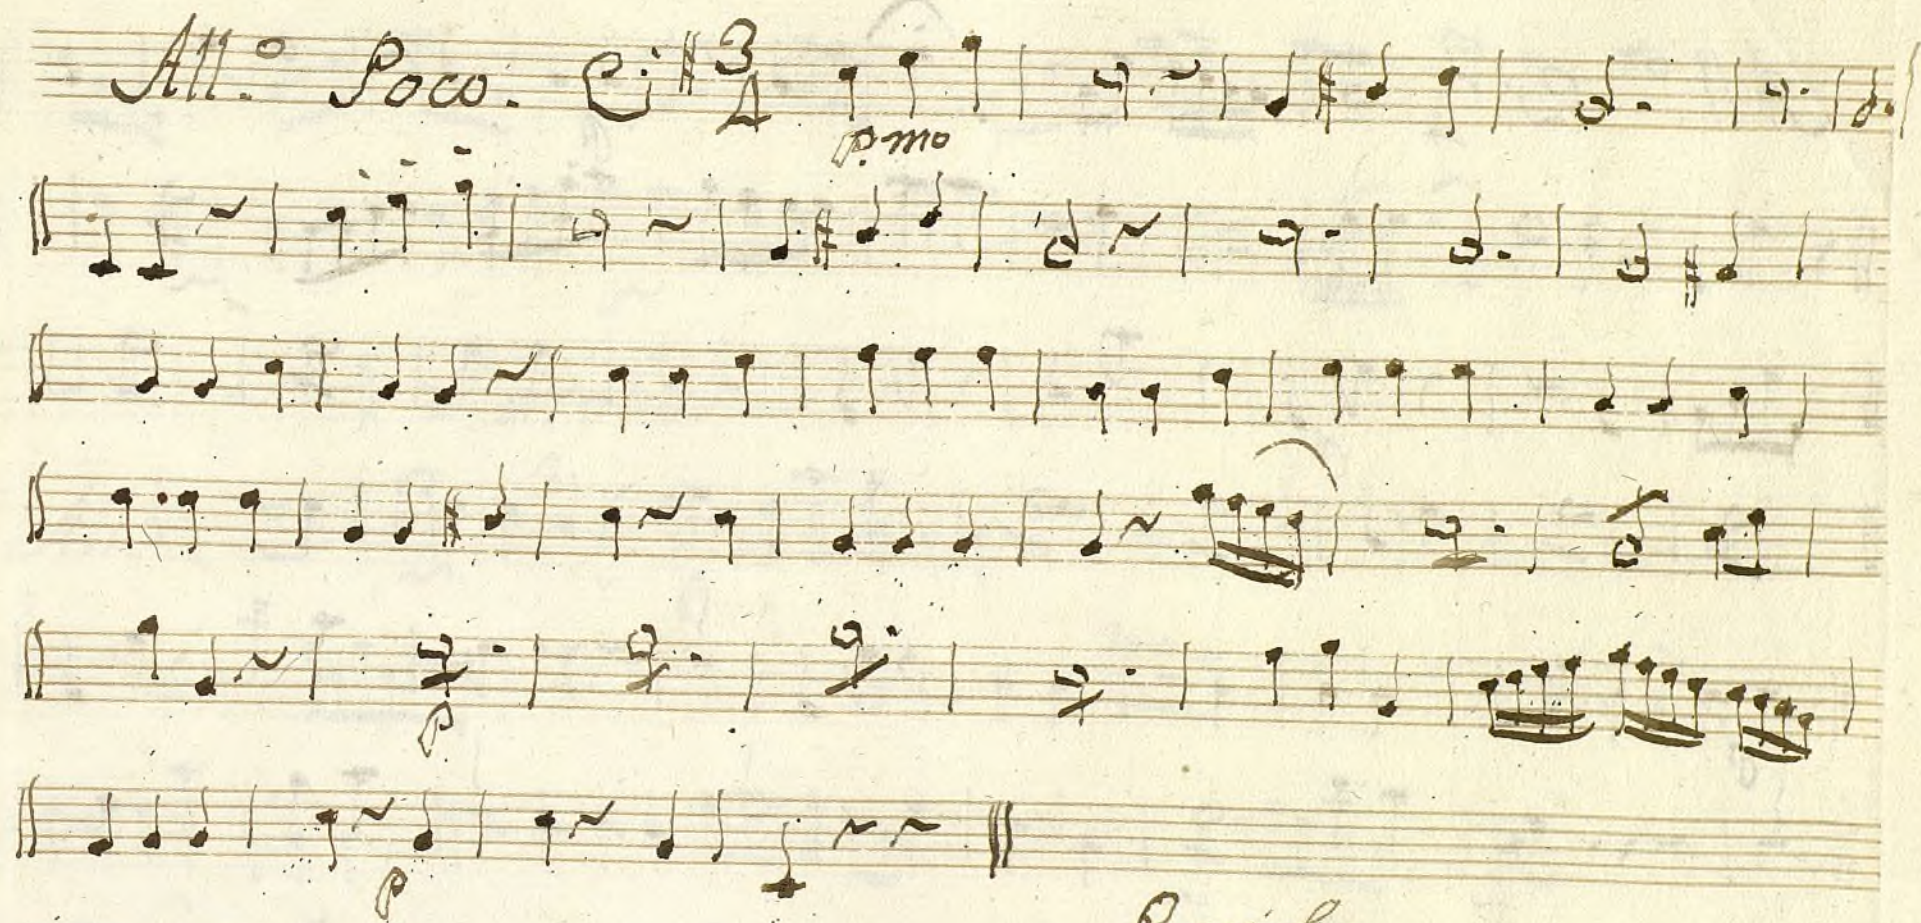 All.º Poco. 3/4
pmo
P
P